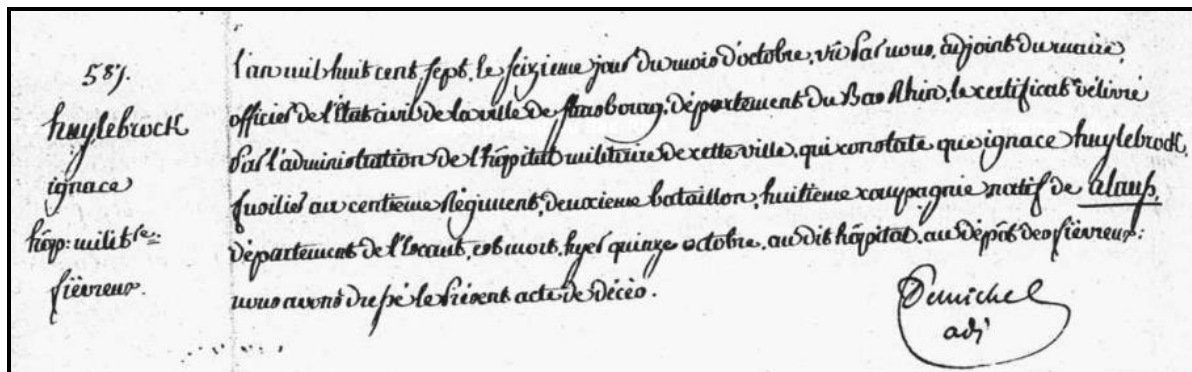 587.
huylebrock
ignace
hôp: milit.re:
fiévreux.
l'an mil huit cent sept, le seizieme jour du mois d'octobre, vû par nous, adjoint du maire,
officier de l'état civil de la ville de strasbourg, département du Bas Rhin, le certificat délivré
par l'administration de l'hôpital militaire de cette ville, qui constate que ignace huylebrock,
fusilier au centieme Régiment, deuxieme bataillon, huitieme compagnie natif de alausp,
département de l'Escaut, est mort, hyer quinze octobre, au dit hôpital, au dépôt des fiévreux:
nous avons dressé le présent acte de décès.
Demichel
adj